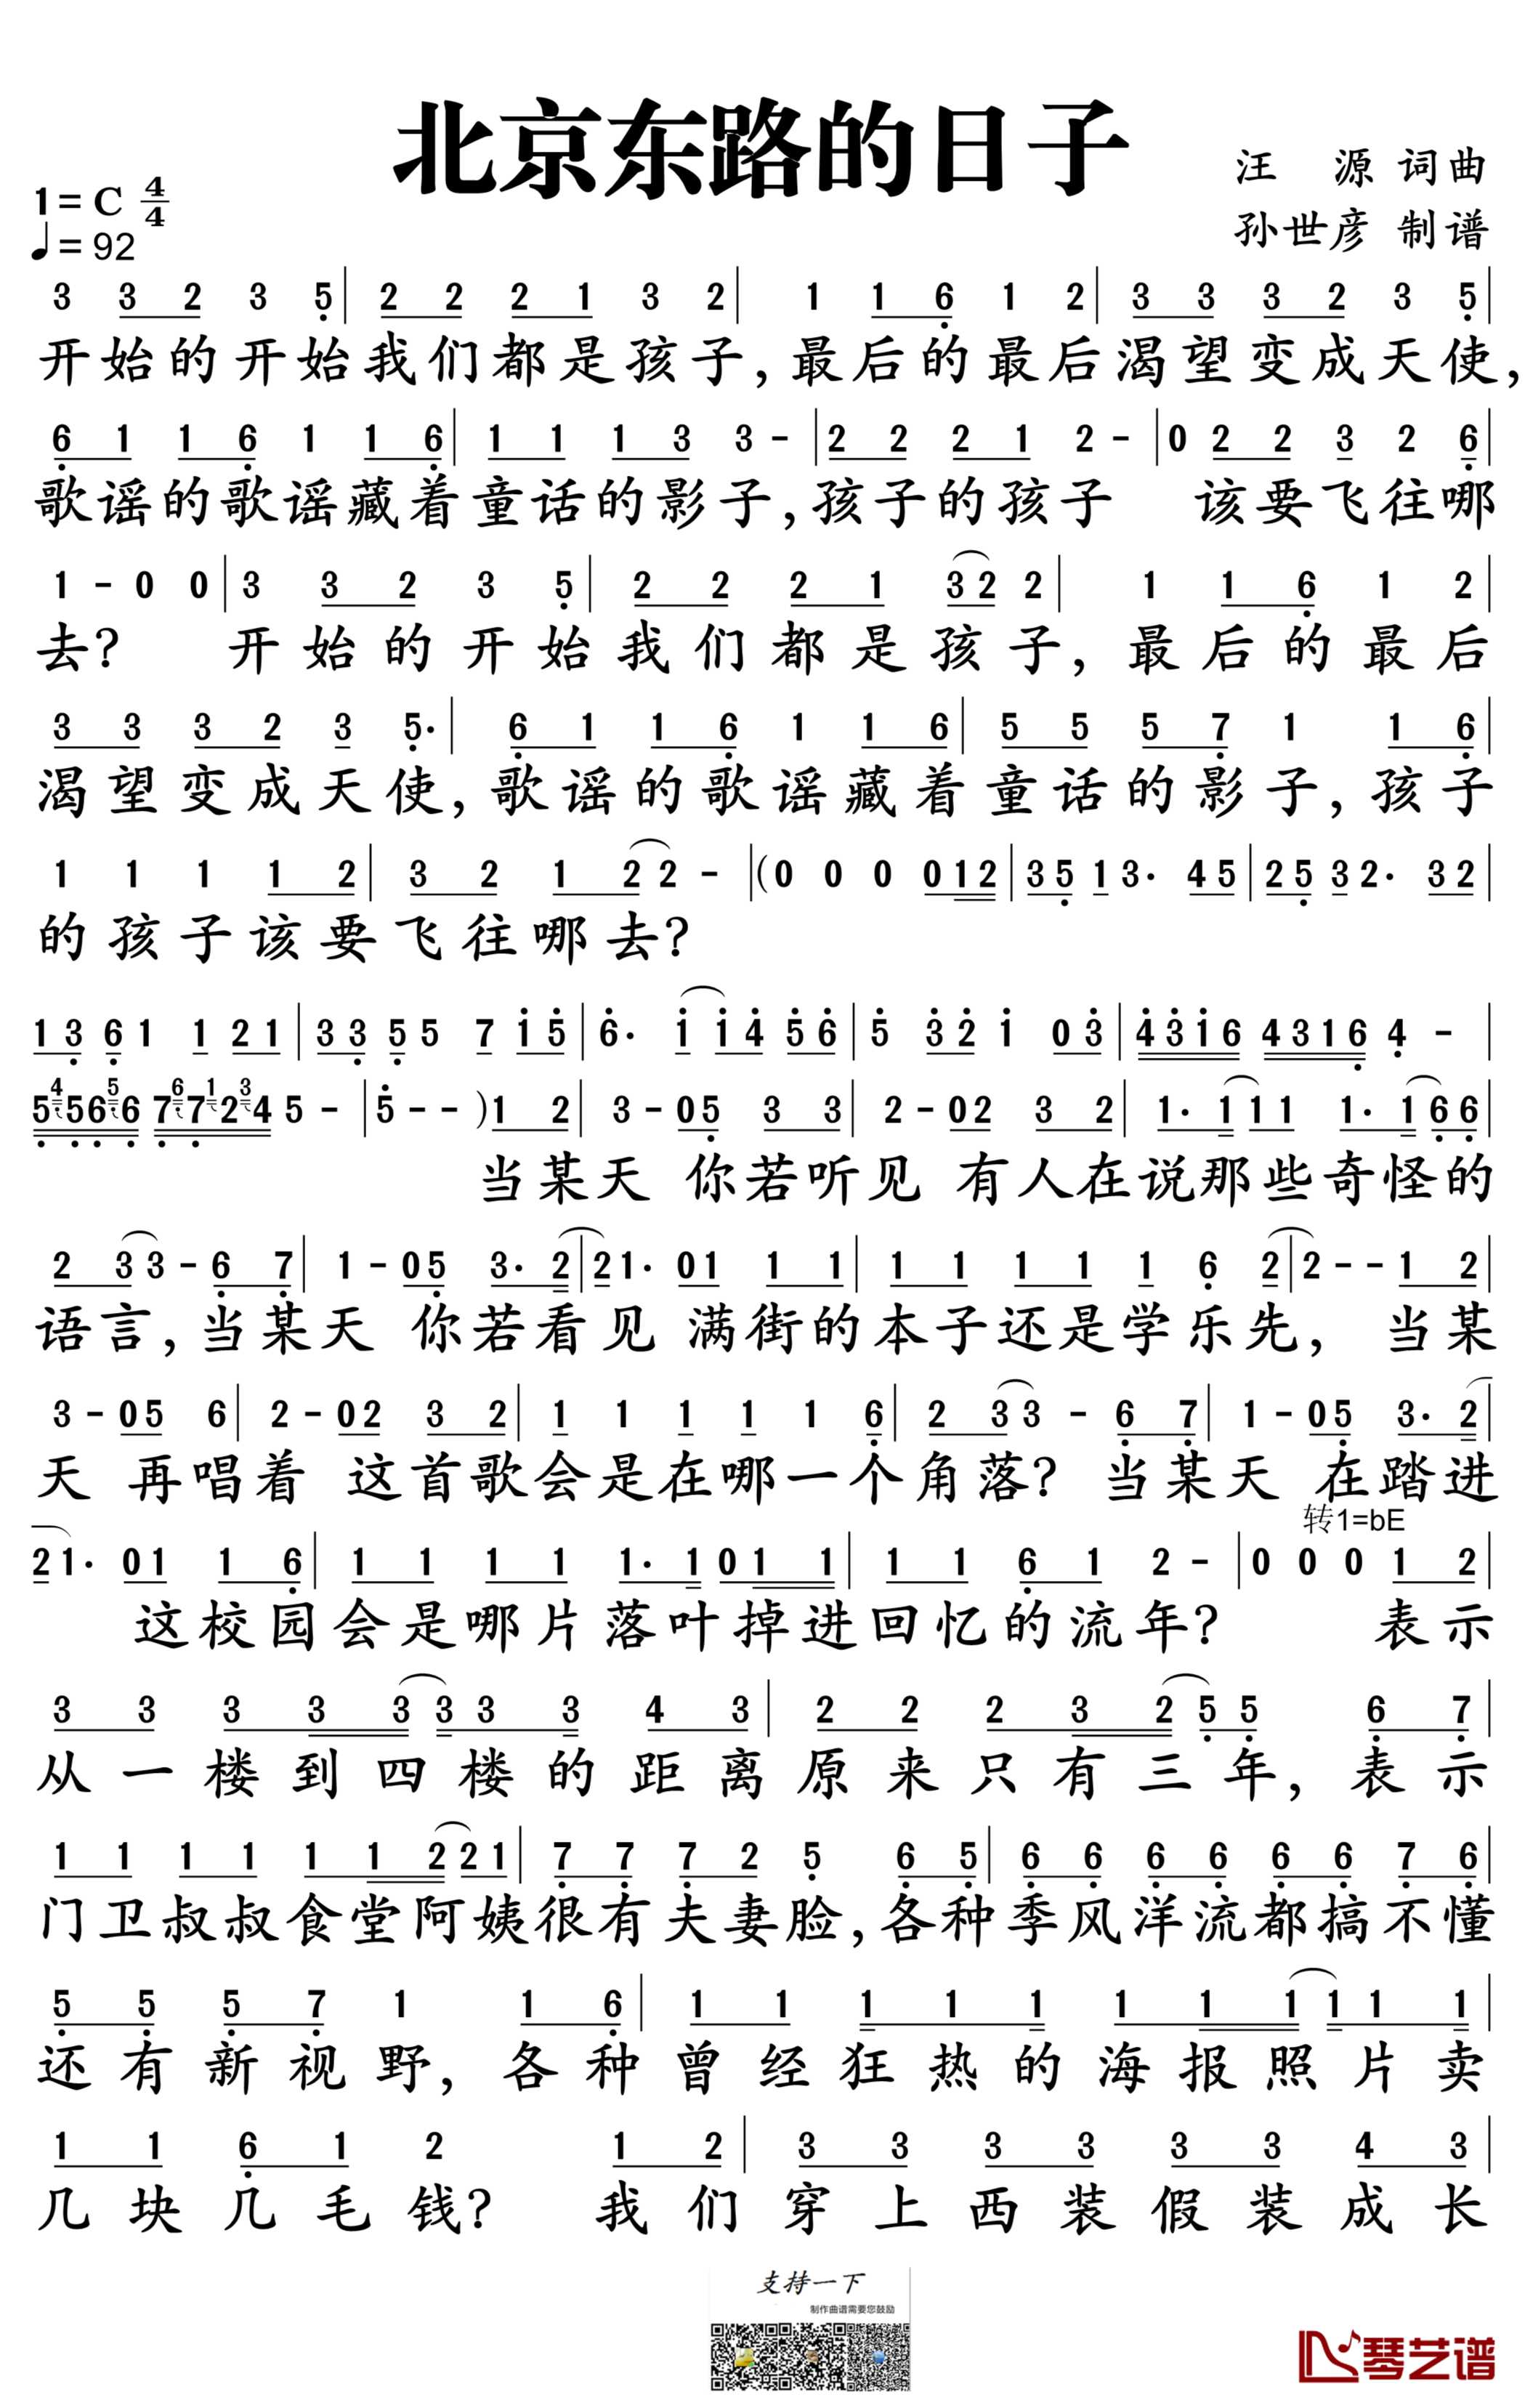 北京东路的日子
汪 源 词曲
孙世彦 制谱
1= C 4/4
♩= 92
3 3 2 3 5 | 2 2 2 1 3 2 | 1 1 6 1 2 | 3 3 3 2 3 5 |
开始的开始我们都是孩子,最后的最后渴望变成天使,
6 1 1 6 1 1 6 | 1 1 1 3 3 - | 2 2 2 1 2 - | 0 2 2 3 2 6 |
歌谣的歌谣藏着童话的影子,孩子的孩子 该要飞往哪
1 - 0 0 | 3 3 2 3 5 | 2 2 2 1 3 2 2 | 1 1 6 1 2 |
去? 开始的开始我们都是孩子,最后的最后
3 3 3 2 3 5· | 6 1 1 6 1 1 6 | 5 5 5 7 1 1 6 |
渴望变成天使,歌谣的歌谣藏着童话的影子,孩子
1 1 1 1 2 | 3 2 1 2 2 - | (0 0 0 0 1 2 | 3 5 1 3· 4 5 | 2 5 3 2· 3 2 |
的孩子该要飞往哪去?
1 3 6 1 1 2 1 | 3 3 5 5 7 1 5 | 6· 1 1 4 5 6 | 5 3 2 1 0 3 | 4 3 1 6 4 3 1 6 4 - |
5 4 5 6 5 6 7 6 7 1 2 3 4 5 - | 5 - - ) 1 2 | 3 - 0 5 3 3 | 2 - 0 2 3 2 | 1· 1 1 1 1· 1 6 6 |
当某天 你若听见 有人在说那些奇怪的
2 3 3 - 6 7 | 1 - 0 5 3· 2 | 2 1· 0 1 1 1 | 1 1 1 1 1 6 2 | 2 - - 1 2 |
语言,当某天 你若看见 满街的本子还是学乐先, 当某
3 - 0 5 6 | 2 - 0 2 3 2 | 1 1 1 1 1 6 | 2 3 3 - 6 7 | 1 - 0 5 3· 2 |
天 再唱着 这首歌会是在哪一个角落? 当某天 在踏进
转1=bE
2 1· 0 1 1 6 | 1 1 1 1 1· 1 0 1 1 | 1 1 6 1 2 - | 0 0 0 1 2 |
这校园会是哪片落叶掉进回忆的流年? 表示
3 3 3 3 3 3 3 3 4 3 | 2 2 2 3 2 5 5 6 7 |
从一楼到四楼的距离原来只有三年,表示
1 1 1 1 1 1 2 2 1 | 7 7 7 2 5 6 5 | 6 6 6 6 6 6 7 6 |
门卫叔叔食堂阿姨很有夫妻脸,各种季风洋流都搞不懂
5 5 5 7 1 1 6 | 1 1 1 1 1 1 1 1 1 1 1 |
还有新视野,各种曾经狂热的海报照片卖
1 1 6 1 2 1 2 | 3 3 3 3 3 3 4 3 |
几块几毛钱? 我们穿上西装假装成长
支持一下
制作曲谱需要您鼓励
琴艺谱